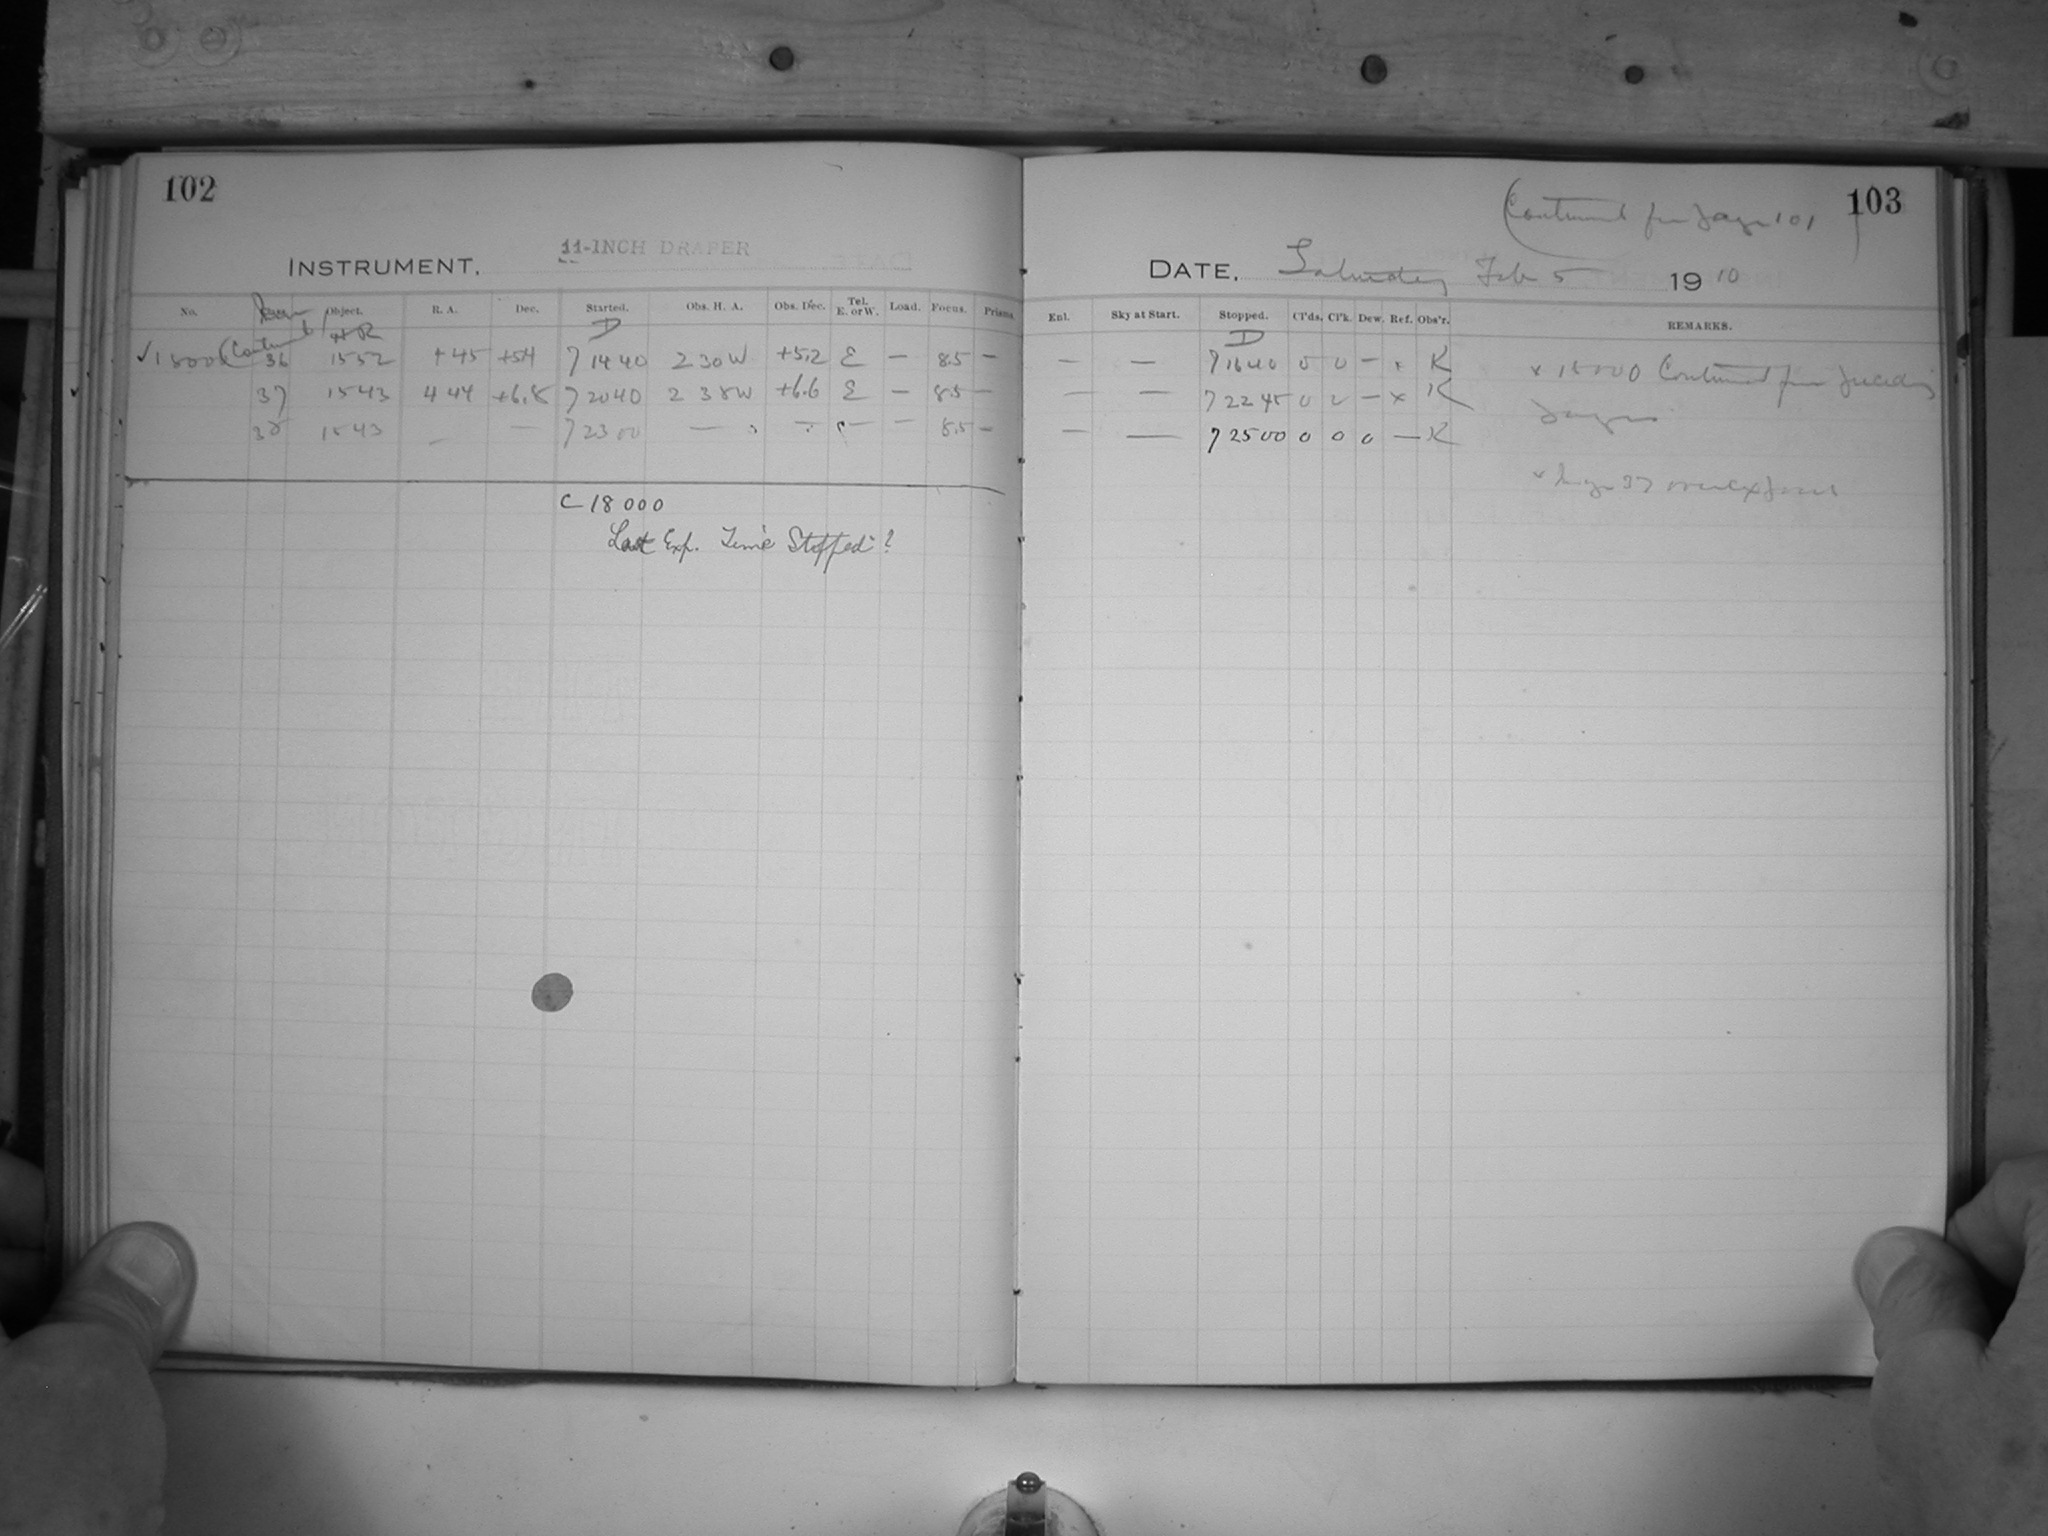 102
INSTRUMENT. 11-INCH DRAPER
No. Object. R. A. Dec. Started. Obs. H. A. Obs. Dec. Tel. E. or W. Load. Focus. Prisms.
HR D
✓18000 (Continued 36 1552 +45 +5.4 7 14 40 2 30 W +5.2 E — 8.5 —
37 1543 4 44 +6.8 7 20 40 2 38 W +6.6 E — 8.5 —
38 1543 — — 7 23 00 — — — — 8.5 —
C 18000
Last Exp. Time Stopped?
(Continued from page 101)
103
DATE. Saturday Feb 5 1910
Enl. Sky at Start. Stopped. Cl'ds. Cl'k. Dew. Ref. Obs'r. REMARKS.
D
— — 7 16 40 0 0 — x K x 18000 Continued from preceding
— — 7 22 45 0 0 — x K page
— — 7 25 00 0 0 0 — K
37 overexposed